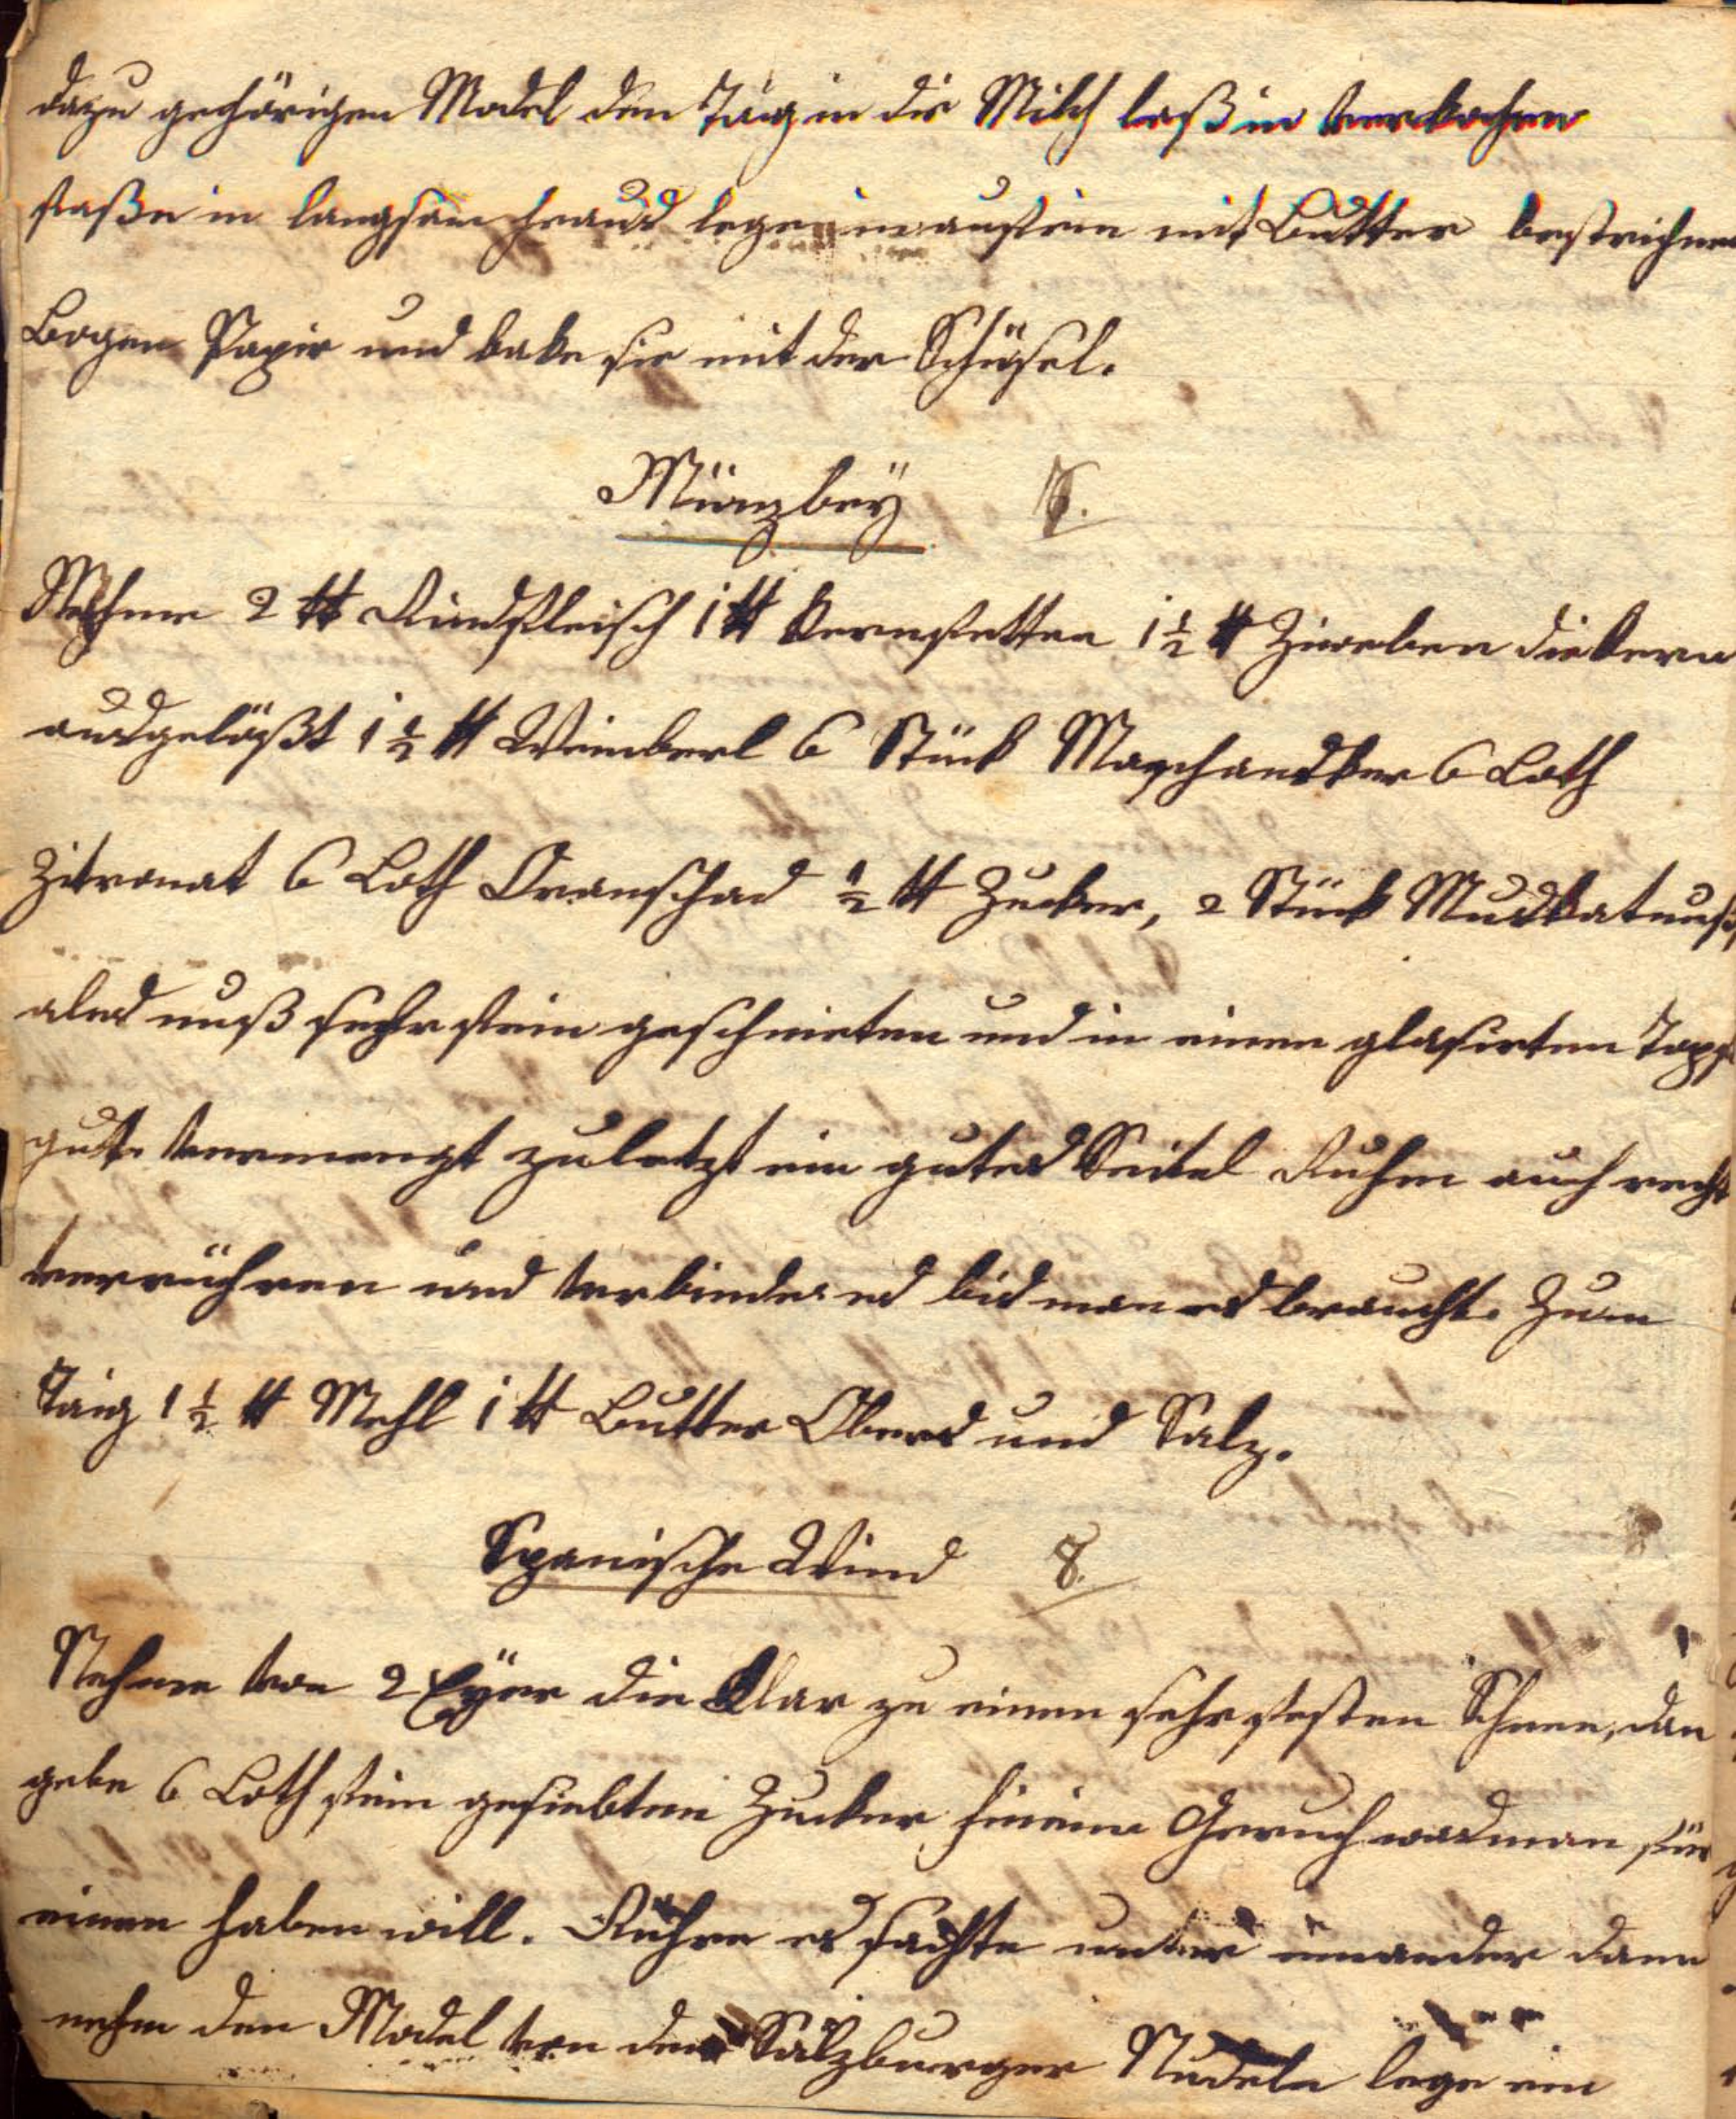 dazu gehörigen Model den Taig in die Milch laß in verkochen
faße in langsam heraus lege in auf ein mit Butter bestrichnen
Bogen Papir und bake sie mit der Schüsel.
Minzbeÿ
Nehme 2 ℔ Rindfleisch 1 ℔ Kernfetten 1 ½ ℔ Ziweben die Kern
ausgelößt 1 ½ ℔ Weinberl 6 Stück Maschansker 6 Loth
Zitronat 6 Loth Oranschad ½ ℔ Zucker, 2 Stück Muskatnuß
ales muß sehr fein geschnieten und in einen glasirten Topf
gut vermengt zuletzt ein gutes Seitel Ruhm auch recht
verrühren und verbinde es bis man es braucht. Zum
Taig 1 ½ ℔ Mehl 1 ℔ Butter Obers und Salz.
Spanische Wind 8.
Nehme von 2 Eÿer die Klar zu einen sehr festen Schnee, dan
gebe 6 Loth fein gesiebten Zucker hinein Geruch was man für
einen haben will. Rühre es sachte unter einander dann
nehm den Model von den Salzburger Nudeln lege ein